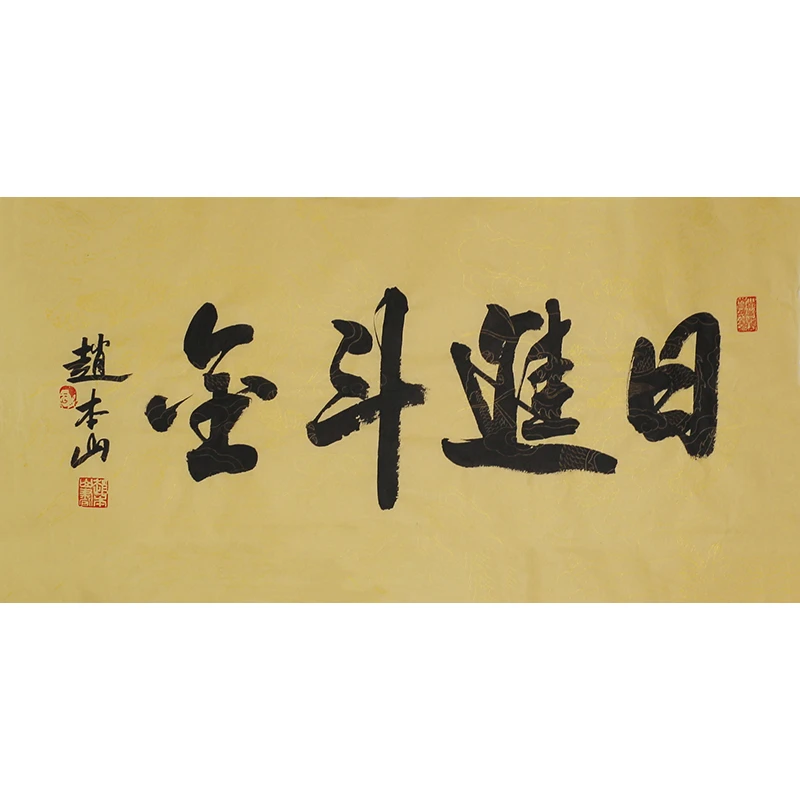 日進斗金
趙本山